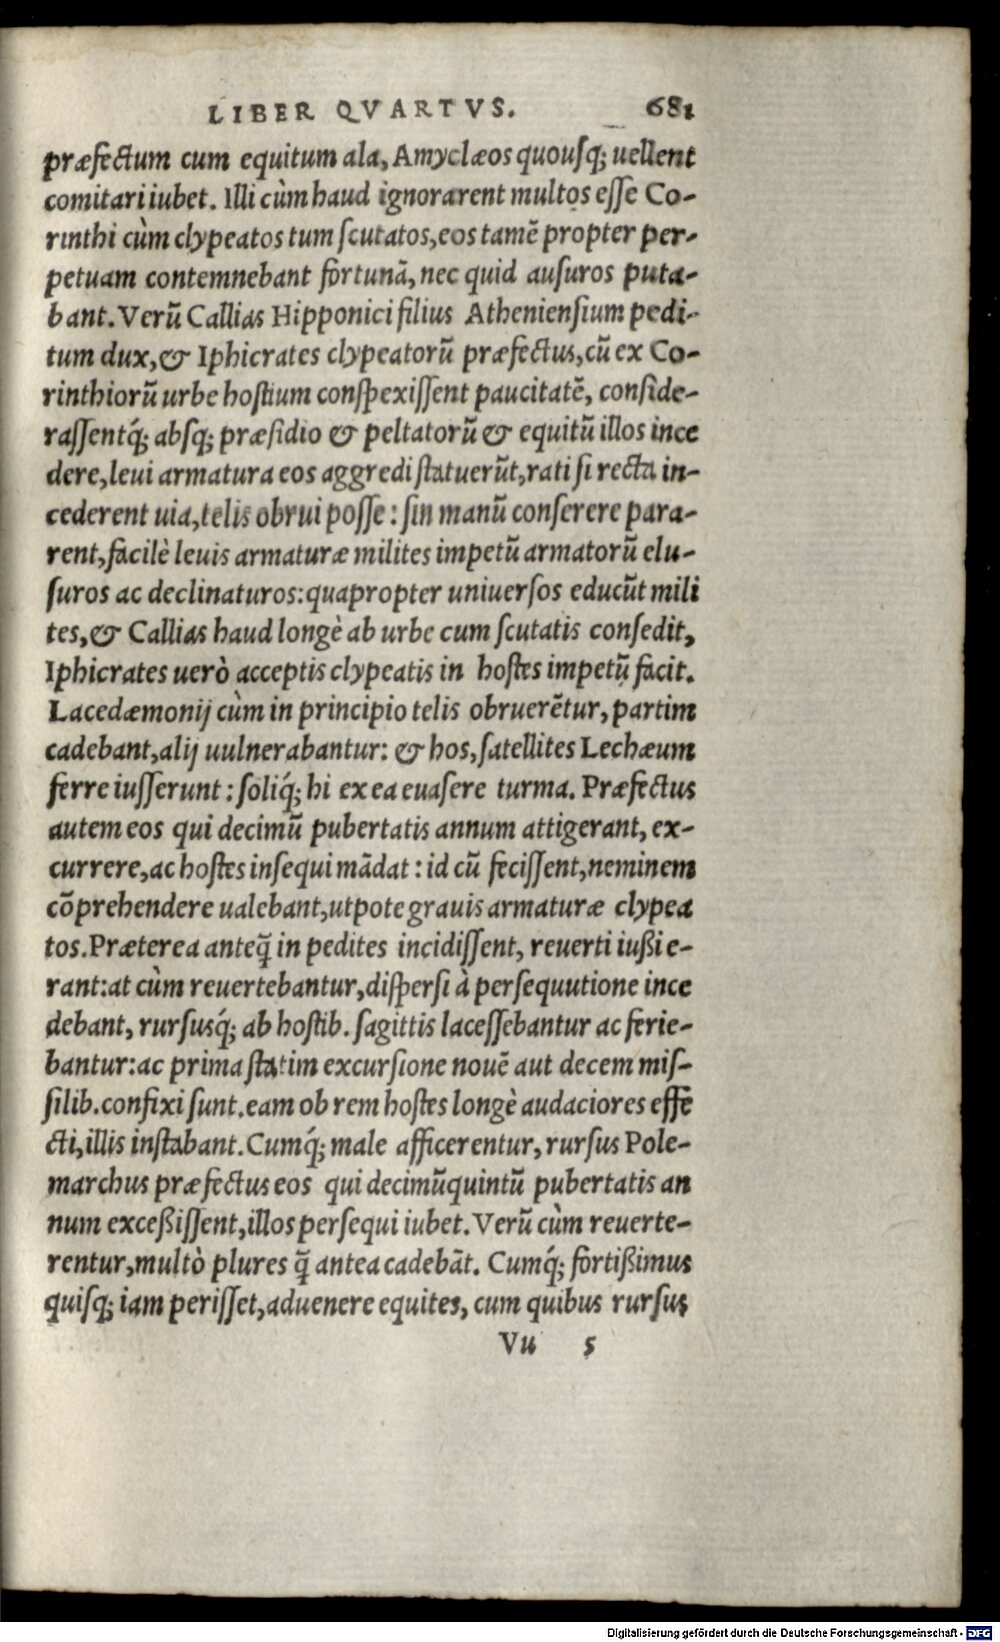 LIBER QVARTVS. 681
præfectum cum equitum ala, Amyclæos quouſq; uellent
comitari iubet. Illi cùm haud ignorarent multos eſſe Co-
rinthi cùm clypeatos tum ſcutatos, eos tamē propter per-
petuam contemnebant fortunā, nec quid auſuros puta-
bant. Verū Callias Hipponici filius Athenienſium pedi-
tum dux, & Iphicrates clypeatorū præfectus, cū ex Co-
rinthiorū urbe hoſtium conſpexiſſent paucitatē, conſide-
raſſentq́; abſq; præſidio & peltatorū & equitū illos ince
dere, leui armatura eos aggredi ſtatuerūt, rati ſi recta in-
cederent uia, telis obrui poſſe: ſin manū conſerere para-
rent, facilè leuis armaturæ milites impetū armatorū elu-
ſuros ac declinaturos: quapropter uniuerſos educūt mili
tes, & Callias haud longè ab urbe cum ſcutatis conſedit,
Iphicrates uerò acceptis clypeatis in hoſtes impetū facit.
Lacedæmonij cùm in principio telis obruerētur, partim
cadebant, alij uulnerabantur: & hos, ſatellites Lechæum
ferre iuſſerunt: ſoliq́; hi ex ea euaſere turma. Præfectus
autem eos qui decimū pubertatis annum attigerant, ex-
currere, ac hoſtes inſequi mādat: id cū feciſſent, neminem
cōprehendere ualebant, utpote grauis armaturæ clypea
tos. Præterea anteq̄ in pedites incidiſſent, reuerti iußi e-
rant: at cùm reuertebantur, diſperſi à perſequutione ince
debant, rurſusq́; ab hoſtib. ſagittis laceſſebantur ac ferie-
bantur: ac prima ſtatim excurſione nouē aut decem miſ-
ſilib. confixi ſunt. eam ob rem hoſtes longè audaciores effe
cti, illis inſtabant. Cumq́; male afficerentur, rurſus Pole-
marchus præfectus eos qui decimūquintū pubertatis an
num exceßiſſent, illos perſequi iubet. Verū cùm reuerte-
rentur, multò plures q̄ antea cadebāt. Cumq́; fortißimus
quiſq; iam periſſet, aduenere equites, cum quibus rurſus
Vu 5
Digitalisierung gefördert durch die Deutsche Forschungsgemeinschaft - DFG